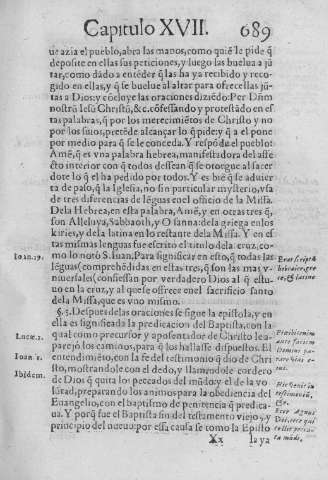 Capitulo XVII. 689
ue azia el pueblo, abra las manos, como quiẽ le pide q̃
deposite en ellas sus peticiones, y luego las buelua a jũ
tar, como dãdo a entẽder q̃ las ha ya recibido y reco-
gido en ellas, y q̃ se buelue al altar para ofrecellas jũ-
tas a Dios; y cõcluye las oraciones diziẽdo: Per Dñm
nostrũ Iesũ Christũ, &c. cõfessando y protestãdo en es
tas palabras, q̃ por los merecimiẽtos de Christo y no
por los suios, pretẽde alcançar lo q̃ pide: y q̃ a el pone
por medio para q̃ se le conceda. Y respõde el pueblo:
Amẽ, q̃ es vna palabra hebrea, manifestadora del affe
cto interior con q̃ todos dessean q̃ se otorgue al sacer
dote lo q̃ el ha pedido por todos. Y es biẽ q̃ se aduier
ta de paso, q̃ la Iglesia, no sin particular mysterio, vsa
de tres diferencias de lẽguas en el officio de la Missa.
De la Hebrea, en esta palabra, Amẽ, y en otras tres q̃
son Alleluya, Sabaoth, y O sanna: de la griega en los
kiries, y de la latina en lo restante de la Missa. Y en es
tas mismas lenguas fue escrito el titulo de la cruz, co-
mo lo notò S. Iuan. Para significar en esto, q̃ todas las
lẽguas (comprehẽdidas en estas tres, q̃ son las mas v-
niuersales) confiessan por verdadero Dios al q̃ estu-
uo en la cruz, y al que se offrece en el sacrificio santo
de la Missa, que es vno mismo.
§. 3. Despues de las oraciones se sigue la epistola, y en
ella es significada la predicacion del Baptista, con la
qual como precursor y aposentador de Christo le a-
parejò los caminos, para q̃ los hallasse dispuestos. El
entendimiẽto, con la fe del testimonio q̃ dio de Chri
sto, mostrandole con el dedo, y llamandole cordero
de Dios q̃ quita los peccados del mũdo: y el de la vo
lũtad, preparando los animos para la obediencia del
Euangelio, con el baptismo de penitencia q̃ predica-
ua. Y porq̃ fue el Baptista fin del testamento viejo, y
principio del nueuo: por essa causa se como la Episto
Xx la ya
Ioan. 19.
Lucæ. 1.
Ioan. 1.
Ibidem.
Erat scriptũ
hebraice, græ
ce, & latine
Præibis enim
ante faciem
Domini pa-
rare vias e-
ius.
Hic venit in
testimoniũ,
&c.
Ecce Agnus
Dei, ecce qui
tollit peccata
mũdi.